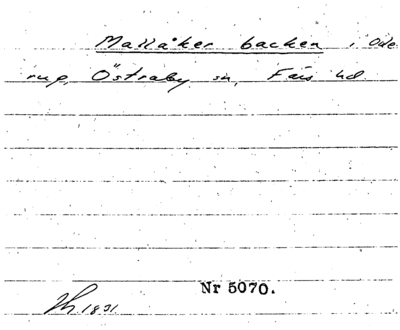 Mallåker backen, Ode
rup, Östraby sn, Färs hd.
Nr 5070.
1891